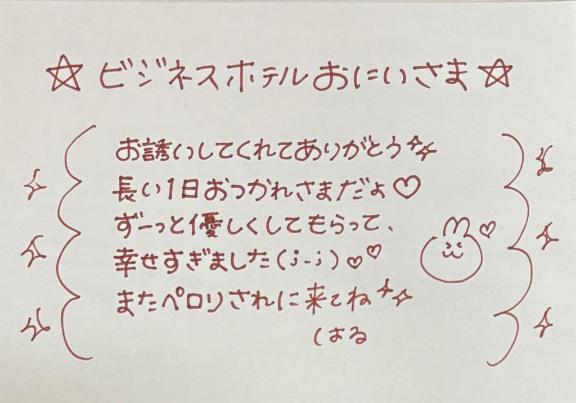 ☆ビジネスホテルおにいさま☆
お誘いしてくれてありがとう
長い1日おつかれさまだよ♡
ずーっと優しくしてもらって、
幸せすぎました(;-;)♡♡
またペロリされに来てね
しはる